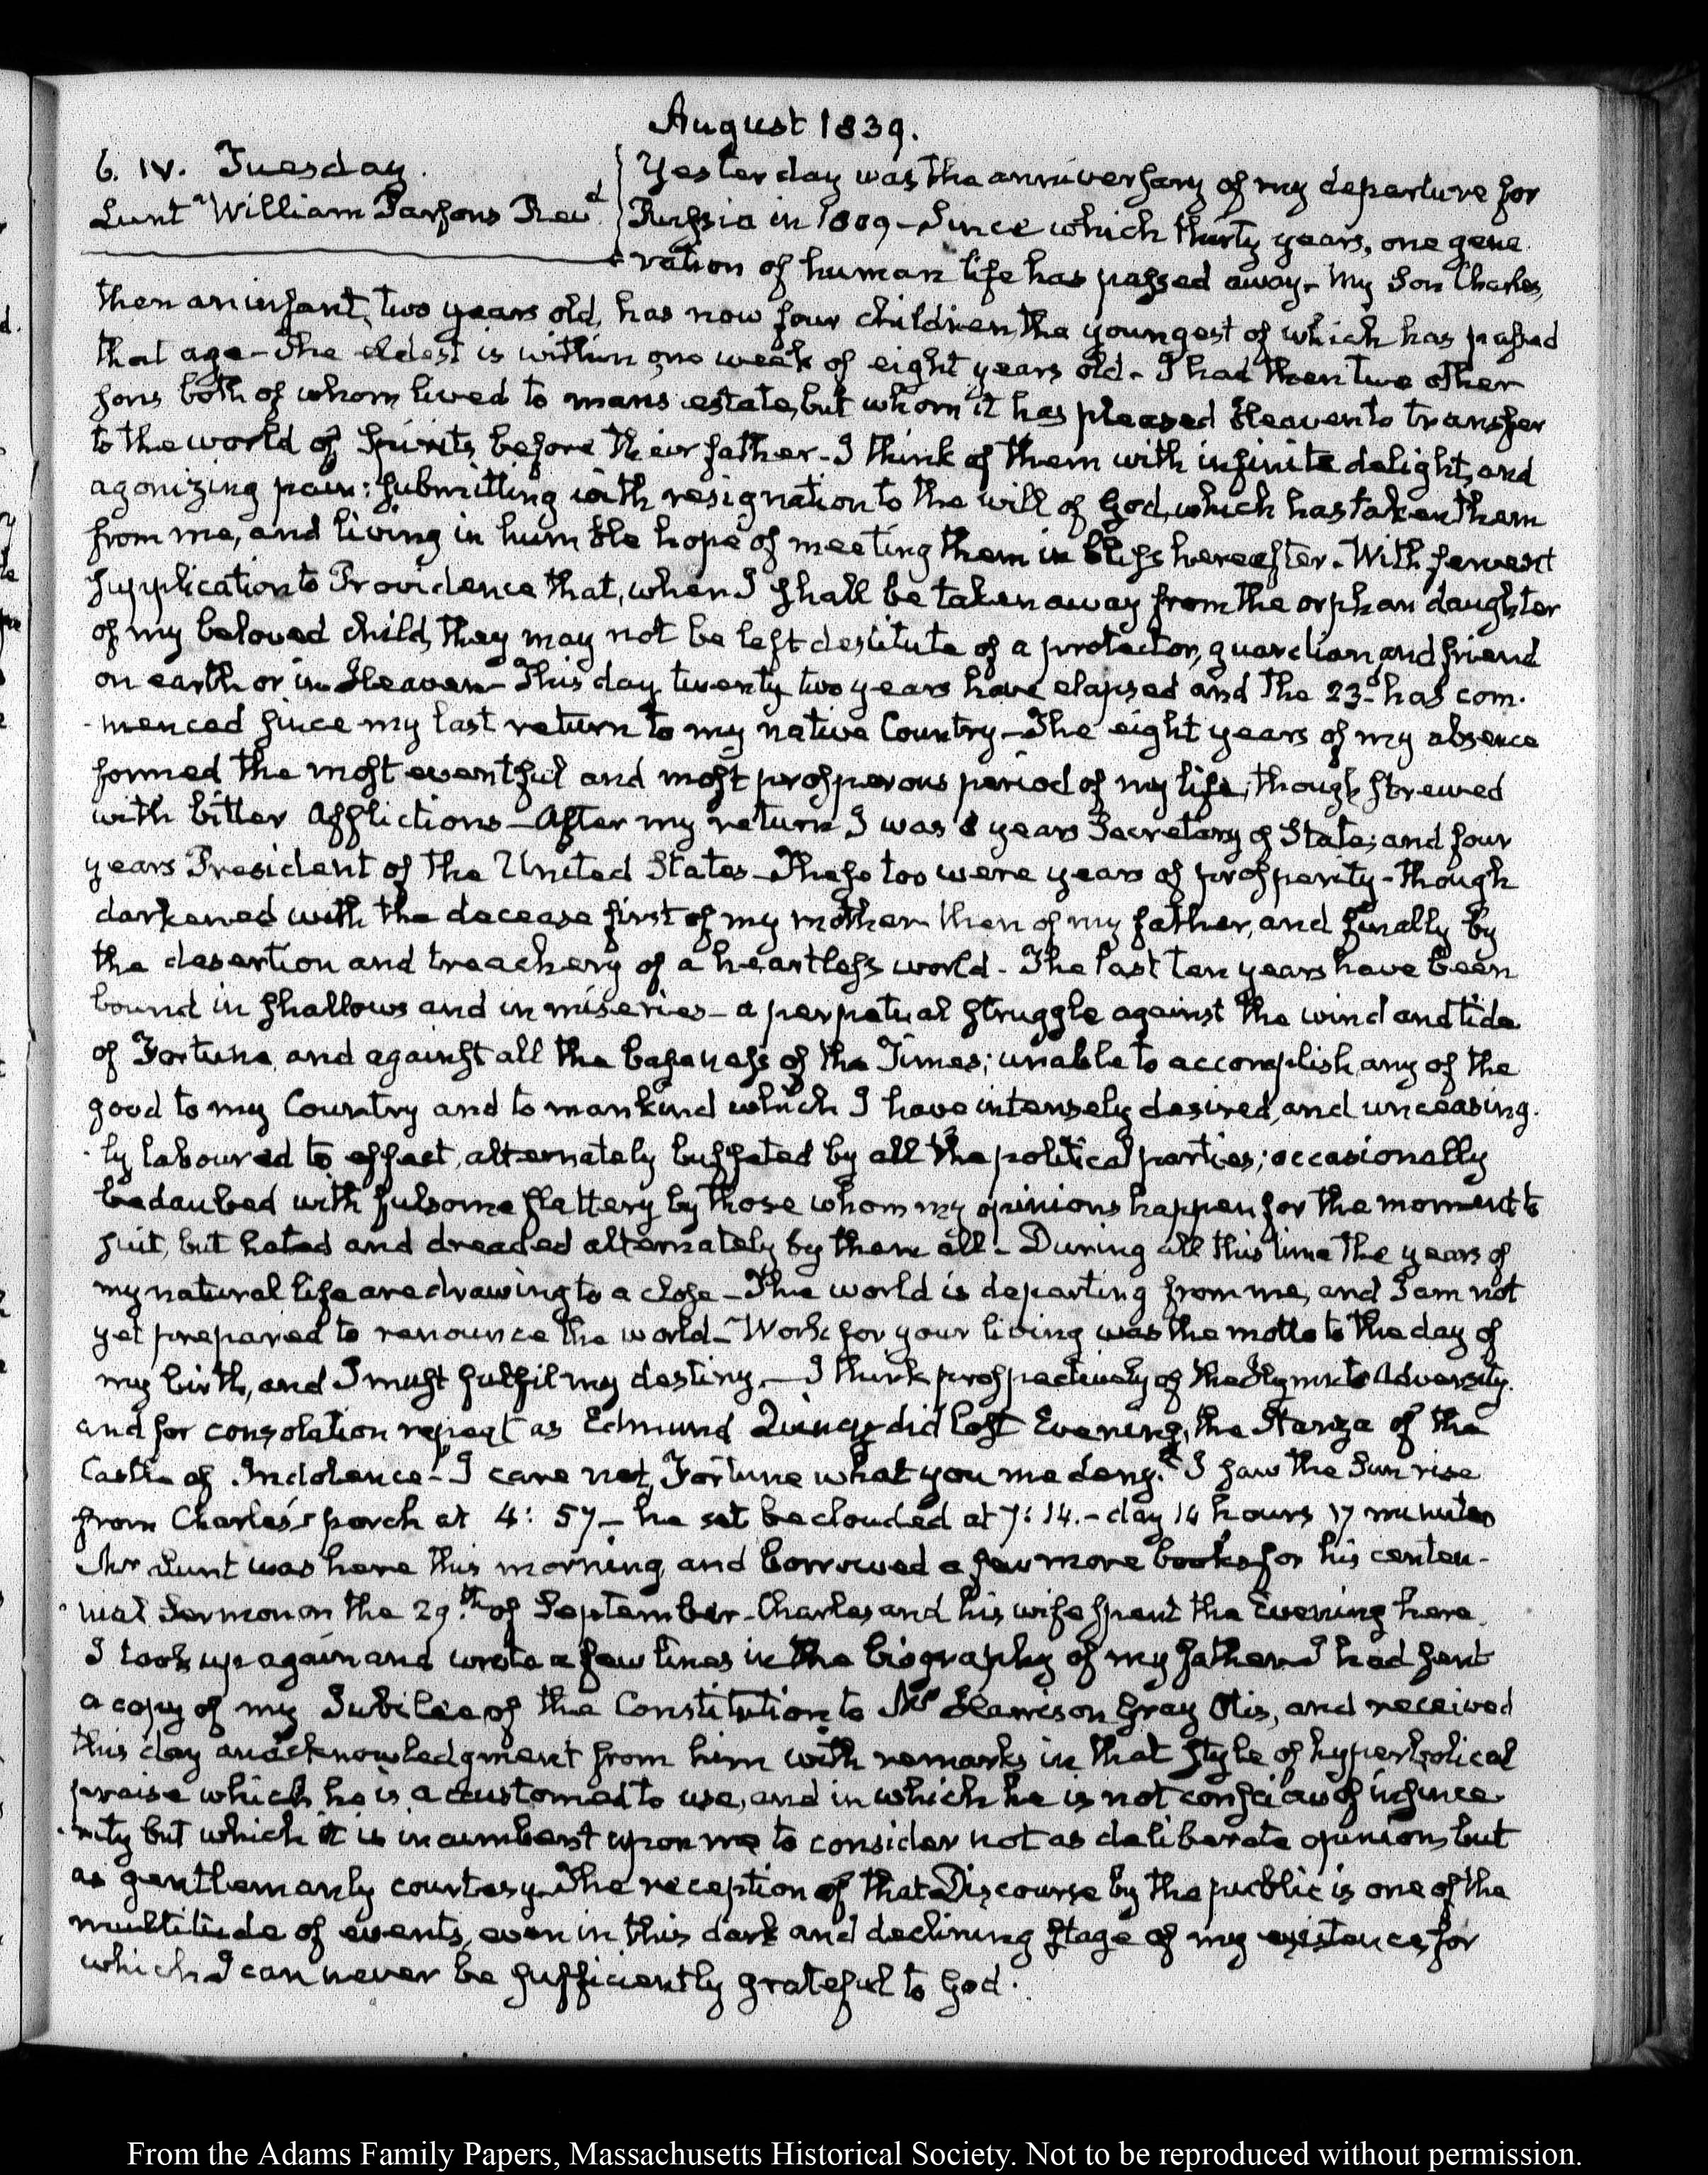 August 1839.
6. IV. Tuesday.
Lunt William Parsons Revd.
Yesterday was the anniversary of my departure for
Russia in 1809 - Since which thirty years, one gene
ration of human life has passed away - My Son Charles,
then an infant, two years old, has now four children, the youngest of which has passed
that age - The eldest is within one week of eight years old - I had then two other
sons both of whom lived to mans estate, but whom it has pleased Heaven to transfer
to the world of Spirits before their father - I think of them with infinite delight, and
agonizing pain: submitting with resignation to the will of God, which has taken them
from me, and living in humble hope of meeting them in bliss hereafter - With fervent
supplication to Providence that, when I shall be taken away from the orphan daughter
of my beloved child, they may not be left destitute of a protector, guardian, and friend
on earth or in Heaven - This day twenty two years have elapsed and the 23d. has com-
-menced since my last return to my native Country - The eight years of my absence
formed the most eventful and most prosperous period of my life, though strewed
with bitter Afflictions - After my return I was 8 years Secretary of State; and four
years President of the United States - These too were years of prosperity - though
darkened with the decease first of my mother then of my father, and finally by
the desertion and treachery of a heartless world - The last ten years have been
bound in shallows and in miseries - a perpetual struggle against the wind and tide
of Fortune and against all the baseness of the Times; unable to accomplish any of the
good to my Country and to mankind which I have intensely desired, and unceasing-
-ly laboured to effect, alternately buffeted by all the political parties; occasionally
bedaubed with fulsome flattery by those whom my opinions happen for the moment to
suit, but hated and dreaded alternately by them all - During all this time the years of
my natural life are drawing to a close - The world is departing from me, and I am not
yet prepared to renounce the world - Work for your living was the motto to the day of
my birth, and I must fulfil my destiny - I think prospectively of the Hymn to Adversity.
and for consolation repeat as Edmund Quincy did last Evening, the Stanza of the
Castle of Indolence - "I care not, Fortune what you me deny." I saw the Sun rise
from Charles's porch at 4: 57 - he set beclouded at 7: 14. - day 14 hours 17 minutes
Mr Lunt was here this morning, and borrowed a few more books for his centen-
-nial Sermon on the 29.th of September - Charles and his wife spent the Evening here.
I took up again and wrote a few lines in the biography of my father - I had sent
a copy of my Jubilee of the Constitution to Mr Harrison Gray Otis, and received
this day an acknowledgment from him with remarks in that style of hyperbolical
praise which he is accustomed to use, and in which he is not conscious of insince
-rity but which it is incumbent upon me to consider not as deliberate opinion, but
as gentlemanly courtesy - The reception of that Discourse by the public is one of the
multitude of events, even in this dark and declining stage of my existence, for
which I can never be sufficiently grateful to God.
From the Adams Family Papers, Massachusetts Historical Society. Not to be reproduced without permission.